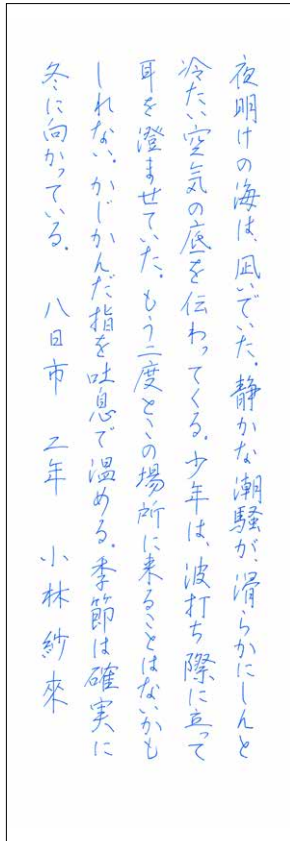 夜明けの海は、凪いでいた。静かな潮騒が、滑らかにしんと
冷たい空気の底を伝わってくる。少年は、波打ち際に立って
耳を澄ませていた。もう二度とこの場所に来ることはないかも
しれない。かじかんだ指を吐息で温める。季節は確実に
冬に向かっている。 八日市 2年 小林紗來